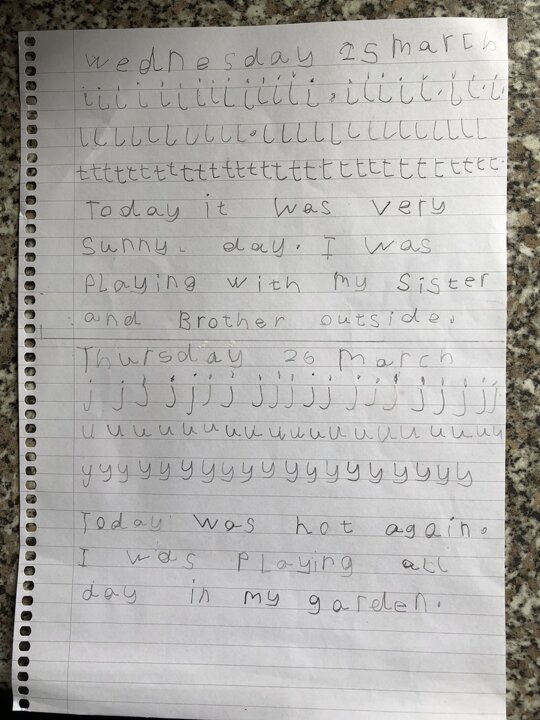 Wednesday 25 March
iiii i iiiiiiiiii i. iiiii.ii.i
llllllllll.lllllllllllll
ttttttttttttttttttttttttttttttt
Today it was very
Sunny. day. I was
Playing with my Sister
and Brother outside.
Thursday 26 March
j j j j j j j j j j j j j j j j j j j j
u u u u u u u u u u u u u u u u u u u u u
y y y y y y y y y y y y y y y y y y y
Today was hot again.
I was Playing all
day in my garden.